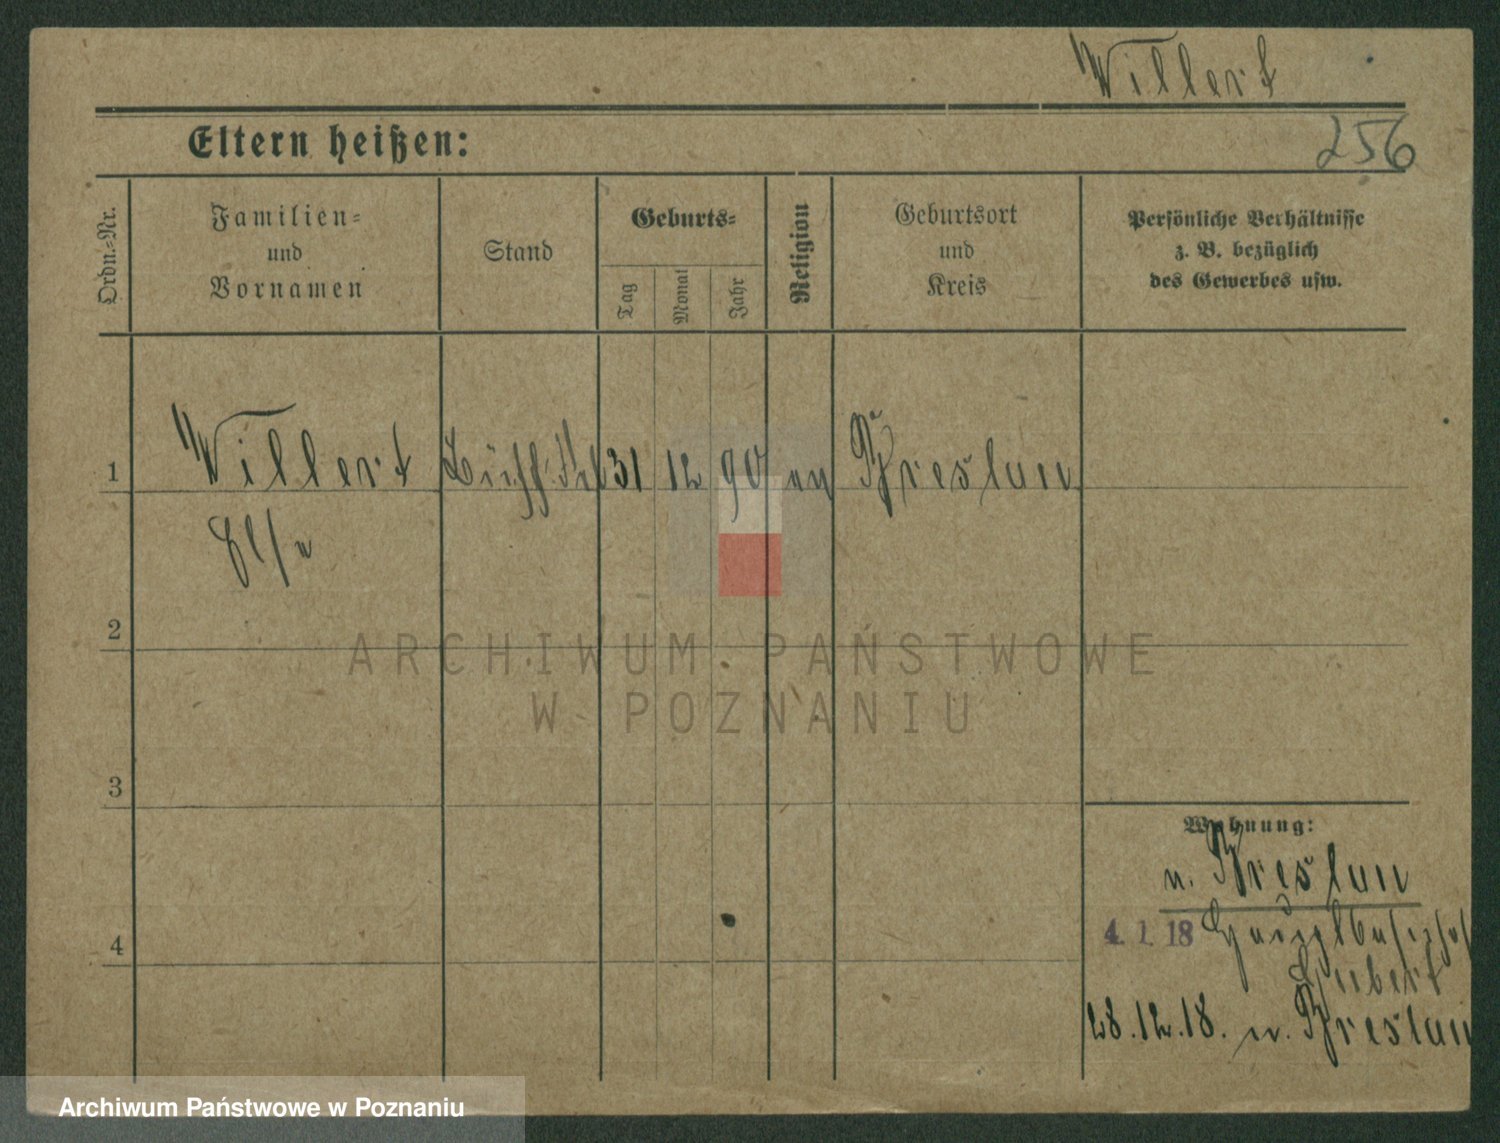 Willert
Eltern heißen:
256
Ordn.-Nr.
Familien-
und
Vornamen
Stand
Geburts-
Tag
Monat
Jahr
Religion
Geburtsort
und
Kreis
Persönliche Verhältnisse
z. B. bezüglich
des Gewerbes usw.
1
Willert
31
12
90
ev
Breslau
Else
2
ARCHIWUM PAŃSTWOWE
W POZNANIU
3
Wohnung:
n. Breslau
4
4. 1. 18
28.12.18. n. Breslau
Archiwum Państwowe w Poznaniu